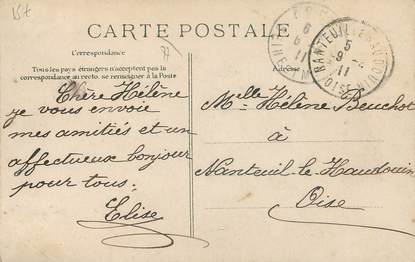 15t
77
CARTE POSTALE
Correspondance
Tous les pays étrangers n'acceptent pas la
correspondance au recto, se renseigner à la Poste
Adresse
Chère Hélène
je vous envoie
mes amitiés et un
affectueux bonjour
pour tous.
Elise
6
11
NANTEUIL-LE-HAUDOUIN
5
9
11
OISE
Melle Hélène Beuchot
à
Nanteuil-le-Haudouin
Oise